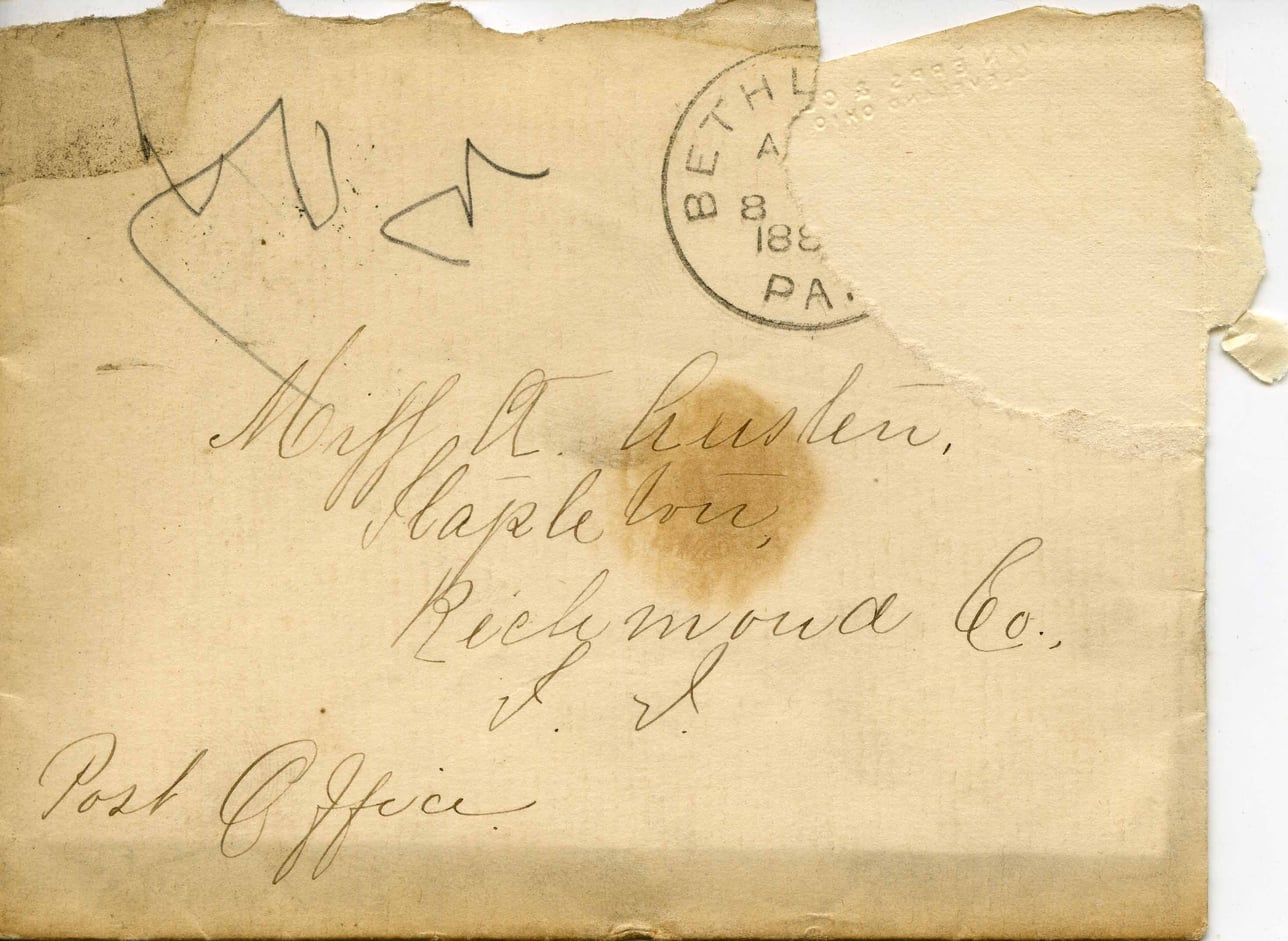 BETHL
A
8
188
PA.
Miss A. Austen,
Stapleton,
Richmond Co.,
S. I.
Post Office